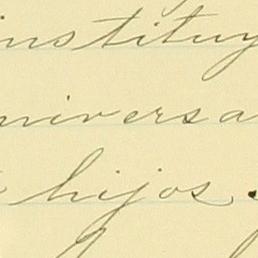 instituy
niversa
hijos.